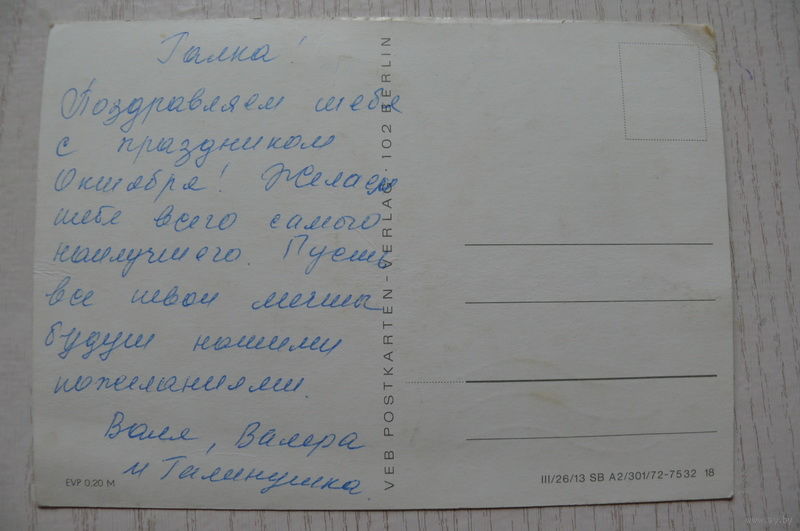 Галка!
Поздравляем тебя
с праздником
Октября! Желаем
тебе всего самого
наилучшего. Пусть
все твои мечты
будут нашими
пожеланиями.
Валя, Валера
и Галинушка.
EVP 0,20 M
VEB POSTKARTEN-VERLAG · 102 BERLIN
III/26/13 SB A2/301/72-7532 18